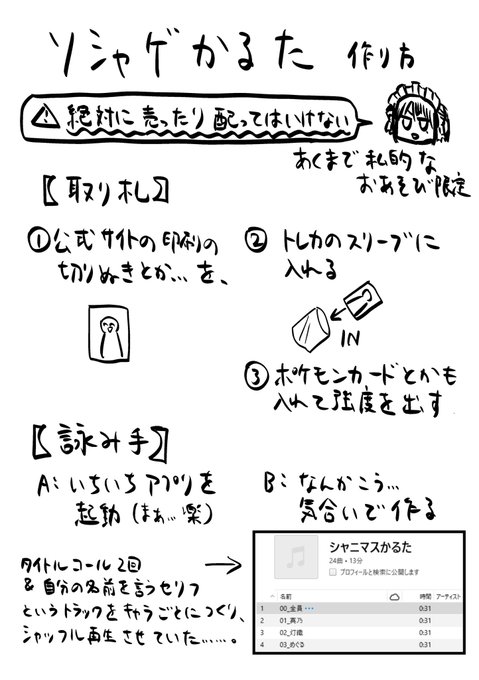 ソシャゲかるた 作り方
⚠ 絶対に売ったり配ってはいけない
あくまで私的な
おあそび限定
【取り札】
①公式サイトの印刷の
切りぬきとか…を、
② トレカのスリーブに
入れる
IN
③ ポケモンカードとかも
入れて強度を出す
【詠み手】
A: いちいちアプリを
起動 (まぁ…楽)
B: なんかこう…
気合いで作る
タイトルコール2回
& 自分の名前を言うセリフ
というトラックをキャラごとにつくり、
シャッフル再生させていた……。
シャニマスかるた
24曲・13分
プロフィールと検索に公開します
名前 時間 アーティスト
1 00_全員 ••• 0:31
2 01_真乃 0:31
3 02_灯織 0:31
4 03_めぐる 0:31